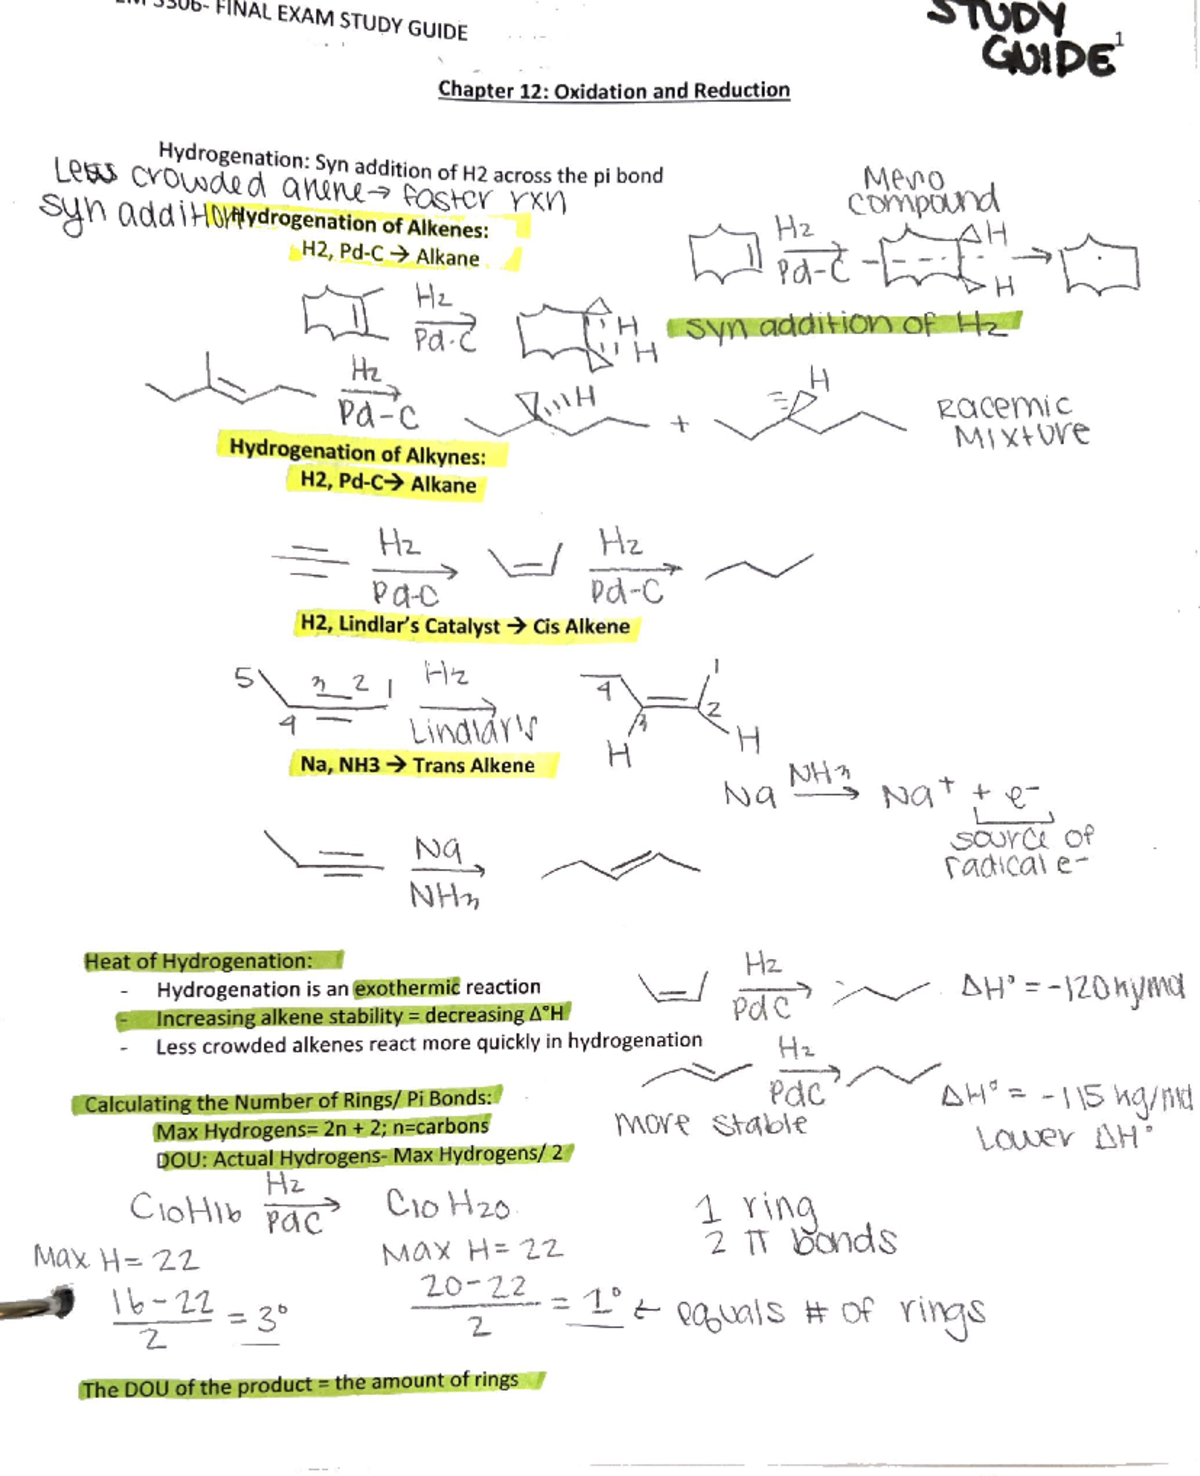 3306- FINAL EXAM STUDY GUIDE
STUDY
GUIDE
1
Chapter 12: Oxidation and Reduction
Hydrogenation: Syn addition of H2 across the pi bond
Less crowded → faster rxn
syn addition
Hydrogenation of Alkenes:
H2, Pd-C → Alkane
Meso
compound
H2
Pd-C
H
H
H2
Pd-C
H
H
syn addition of H2
H2
Pd-C
H
+
H
Racemic
Mixture
Hydrogenation of Alkynes:
H2, Pd-C→ Alkane
H2
Pd-C
H2
Pd-C
H2, Lindlar's Catalyst → Cis Alkene
5 3 2 1
4
H2
Lindlar's
4 1
3 2
H H
Na, NH3 → Trans Alkene
Na NH3 → Na+ + e-
source of
radical e-
Na
NH3
Heat of Hydrogenation:
- Hydrogenation is an exothermic reaction
- Increasing alkene stability = decreasing Δ°H
- Less crowded alkenes react more quickly in hydrogenation
H2
PdC
ΔH° = -120
H2
PdC
ΔH° = -115 kg/mol
more stable
Lower ΔH°
Calculating the Number of Rings/ Pi Bonds:
Max Hydrogens= 2n + 2; n=carbons
DOU: Actual Hydrogens- Max Hydrogens/ 2
C10H16 H2 PdC → C10H20
1 ring
2 π bonds
Max H= 22
Max H= 22
16-22 / 2 = 3°
20-22 / 2 = 1° ← equals # of rings
The DOU of the product = the amount of rings